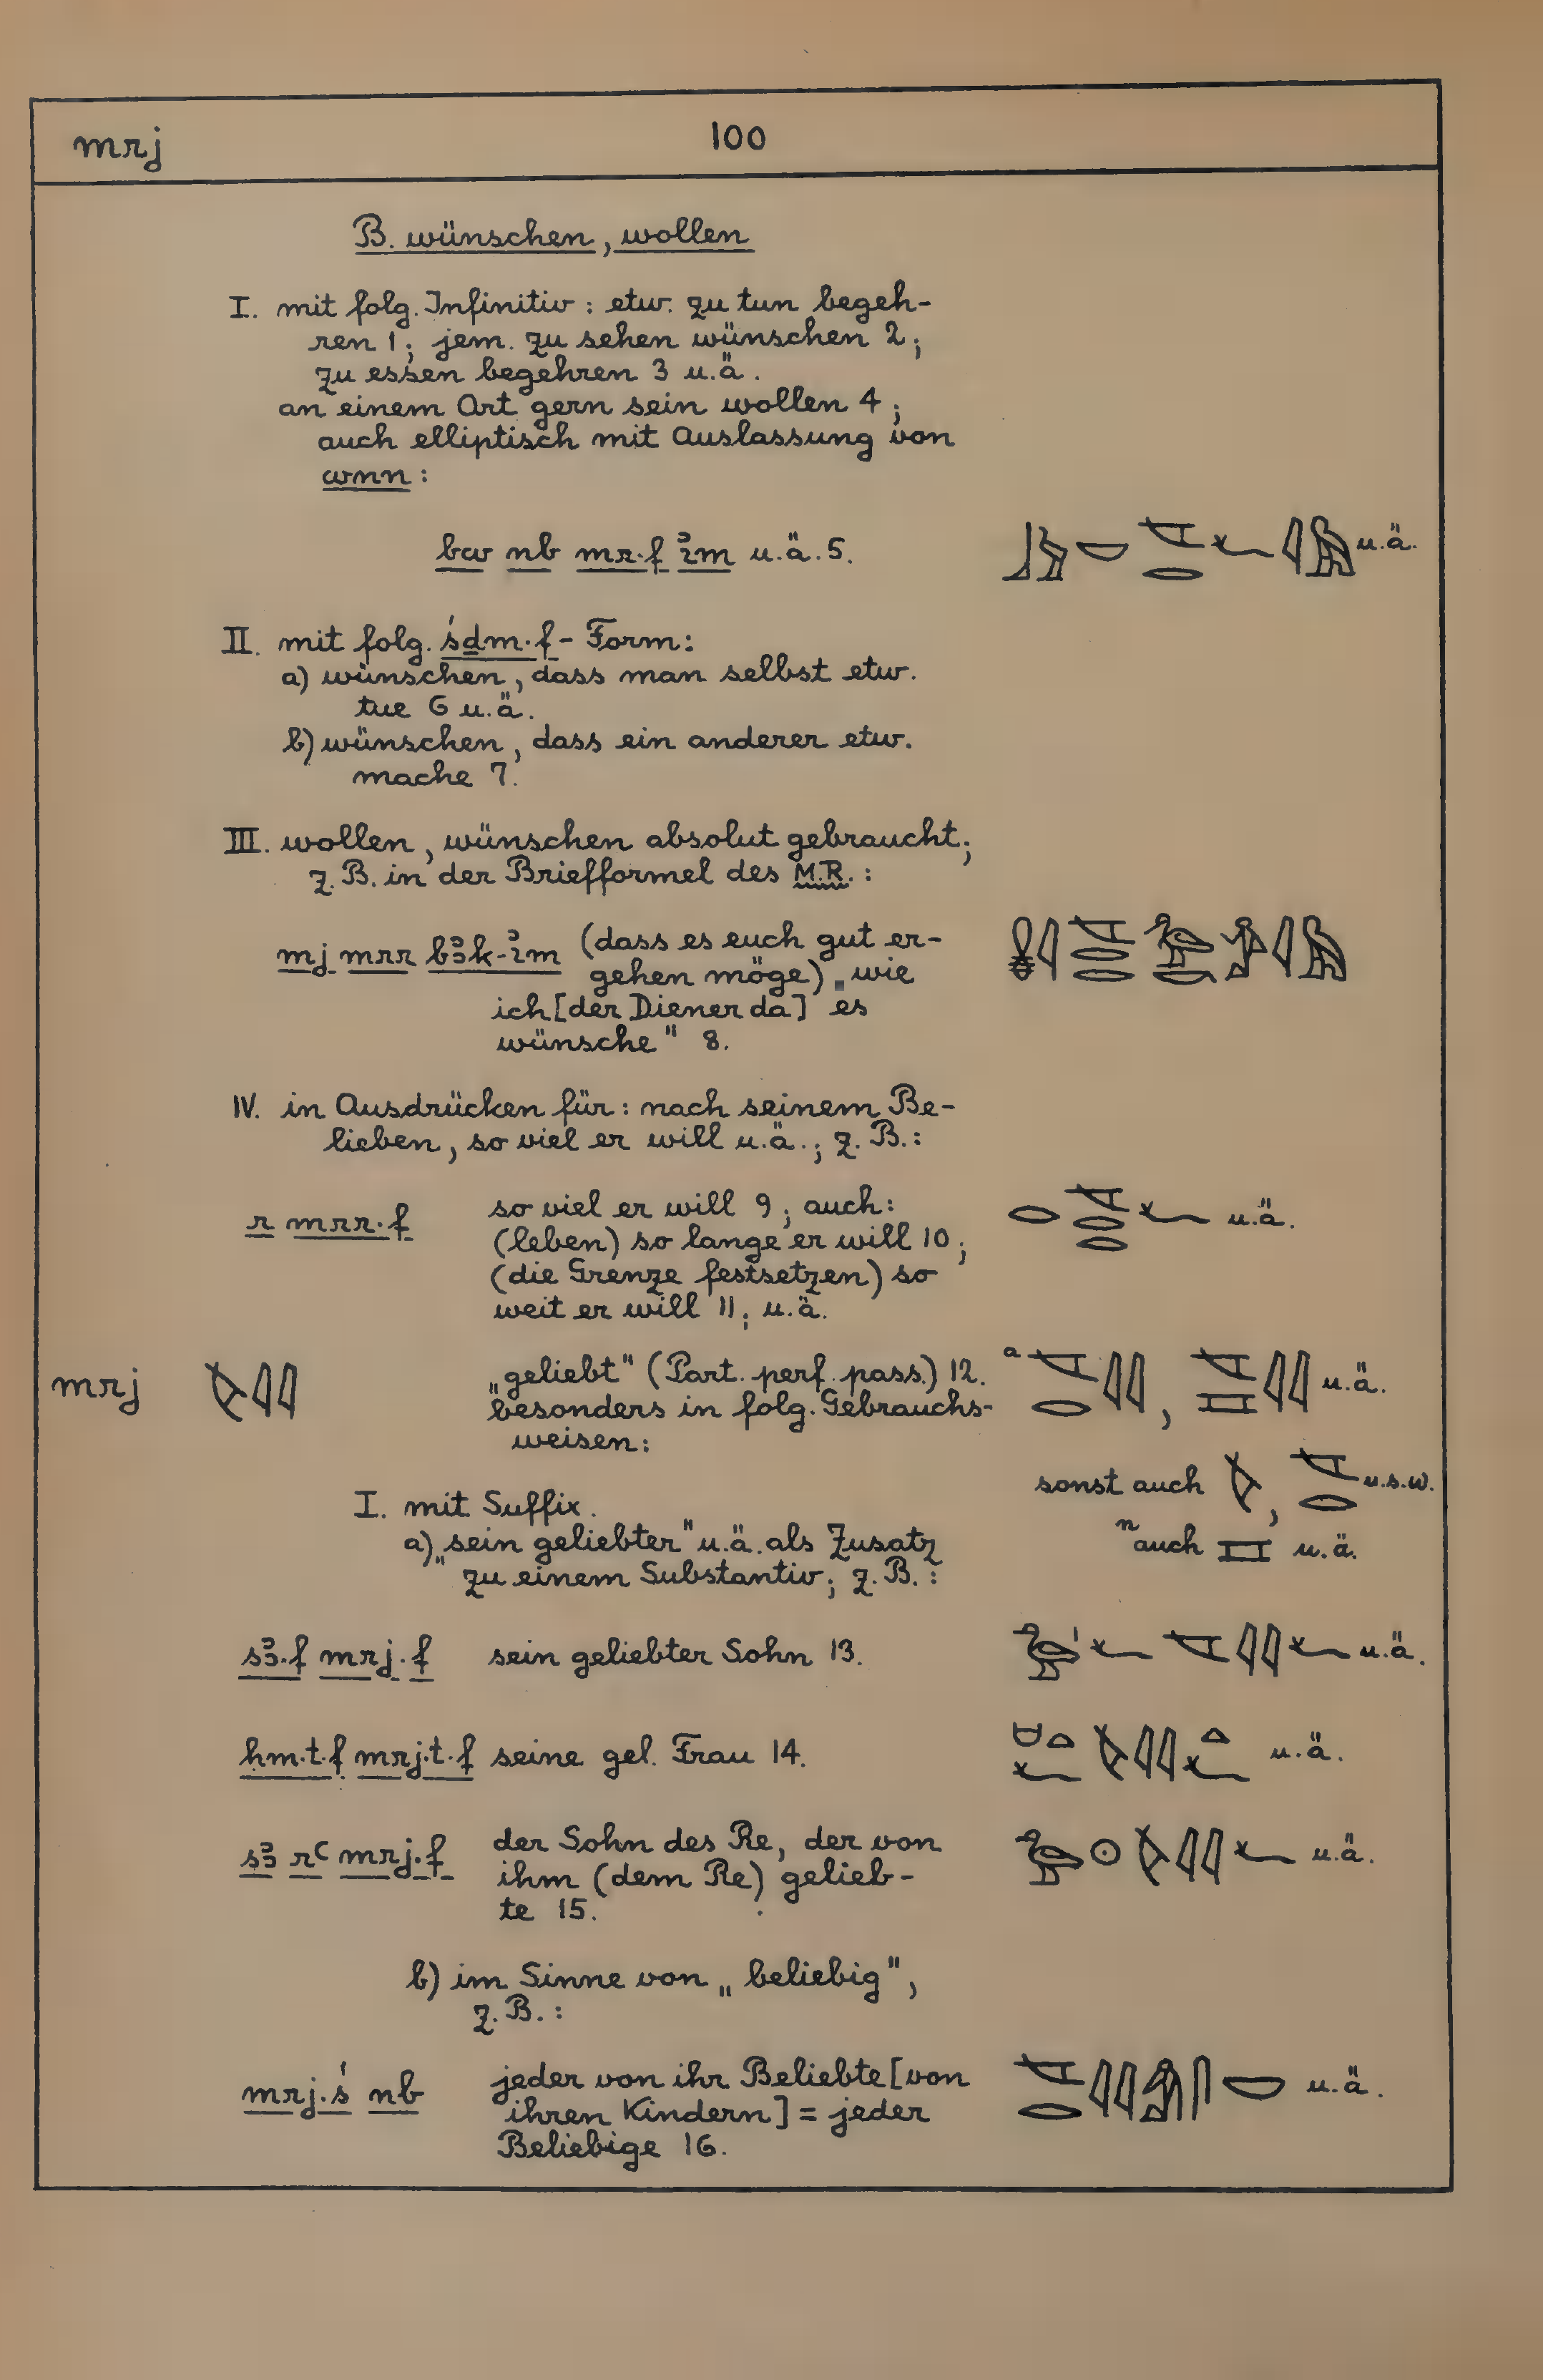 mrj 100
B. wünschen, wollen
I. mit folg. Infinitiv: etw. zu tun begeh-
ren 1; jem. zu sehen wünschen 2;
zu essen begehren 3 u.ä.
an einem Ort gern sein wollen 4;
auch elliptisch mit Auslassung von
wnn:
bw nb mr·f ỉm u.ä. 5. u.ä.
II. mit folg. śḏm·f-Form:
a) wünschen, dass man selbst etw.
tue 6 u.ä.
b) wünschen, dass ein anderer etw.
mache 7.
III. wollen, wünschen absolut gebraucht;
z.B. in der Briefformel des M.R.:
mj mrr bꜣk-ỉm (dass es euch gut er-
gehen möge) „wie
ich [der Diener da] es
wünsche" 8.
IV. in Ausdrücken für: nach seinem Be-
lieben, so viel er will u.ä.; z.B.:
r mrr·f so viel er will 9; auch: u.ä.
(leben) so lange er will 10;
(die Grenze festsetzen) so
weit er will 11; u.ä.
mrj „geliebt" (Part. perf. pass.) 12. a , u.ä.
besonders in folg. Gebrauchs-
weisen:
sonst auch , u.s.w.
I. mit Suffix.
n auch u.ä.
a) „sein geliebter" u.ä. als Zusatz
zu einem Substantiv; z.B.:
sꜣ·f mrj·f sein geliebter Sohn 13. u.ä.
ḥm·t·f mrj·t·f seine gel. Frau 14. u.ä.
sꜣ rꜥ mrj·f der Sohn des Re, der von u.ä.
ihm (dem Re) gelieb-
te 15.
b) im Sinne von „beliebig",
z.B.:
mrj·ś nb jeder von ihr Beliebte [von u.ä.
ihren Kindern] = jeder
Beliebige 16.